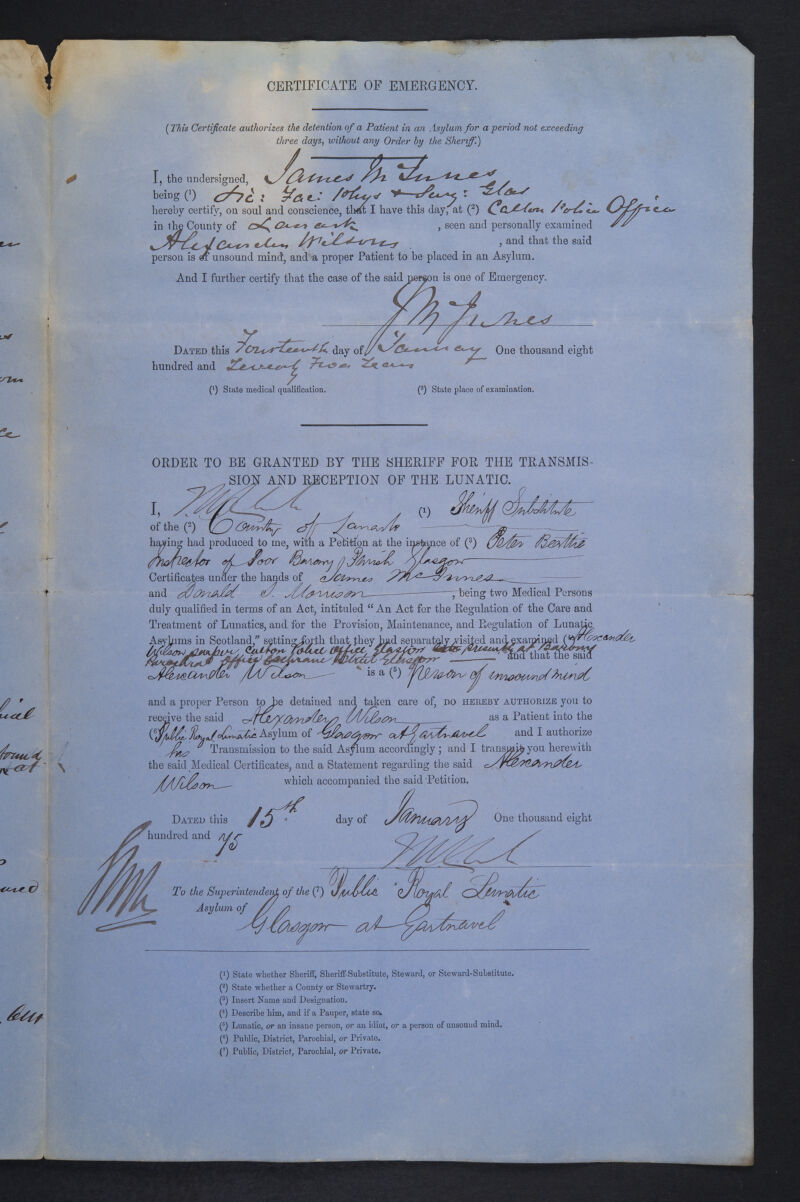 CERTIFICATE OF EMERGENCY.
(This Certificate authorizes the detention of a Patient in an Asylum for a period not exceeding
three days, without any Order by the Sheriff.)
I, the undersigned, James McInnes
being (1) Lic: Fac: Phys & Surg: Glas
hereby certify, on soul and conscience, that I have this day, at (2) Calton Police Office
in the County of Lanark, seen and personally examined
Alexander Wilson, and that the said
person is of unsound mind, and a proper Patient to be placed in an Asylum.
And I further certify that the case of the said person is one of Emergency.
J McInnes
DATED this Fourteenth day of January One thousand eight
hundred and Seventy Five Years
(1) State medical qualification. (2) State place of examination.
ORDER TO BE GRANTED BY THE SHERIFF FOR THE TRANSMIS-
SION AND RECEPTION OF THE LUNATIC.
I, (1) Sheriff Substitute
of the (2) County of Lanark
having had produced to me, with a Petition at the instance of (3) Peter Beattie
Inspector of Poor Barony Parish Glasgow
Certificates under the hands of James McInnes
and Donald J. Morrison, being two Medical Persons
duly qualified in terms of an Act, intituled "An Act for the Regulation of the Care and
Treatment of Lunatics, and for the Provision, Maintenance, and Regulation of Lunatic
Asylums in Scotland," setting forth that they had separately visited and examined (4) Alexander
Wilson pauper, Calton Police Office Glasgow presently at Barony
Parochial Office Cochrane Street Glasgow and that the said
Alexander Wilson is a (5) Person of unsound mind
and a proper Person to be detained and taken care of, DO HEREBY AUTHORIZE you to
receive the said Alexander Wilson as a Patient into the
(6) Public Royal Lunatic Asylum of Glasgow at Gartnavel and I authorize
his Transmission to the said Asylum accordingly; and I transmit you herewith
the said Medical Certificates, and a Statement regarding the said Alexander
Wilson which accompanied the said Petition.
DATED this 15th day of January One thousand eight
hundred and 75
To the Superintendent of the (7) Public Royal Lunatic
Asylum of Glasgow at Gartnavel
(1) State whether Sheriff, Sheriff-Substitute, Steward, or Steward-Substitute.
(2) State whether a County or Stewartry.
(3) Insert Name and Designation.
(4) Describe him, and if a Pauper, state so.
(5) Lunatic, or an insane person, or an idiot, or a person of unsound mind.
(6) Public, District, Parochial, or Private.
(7) Public, District, Parochial, or Private.